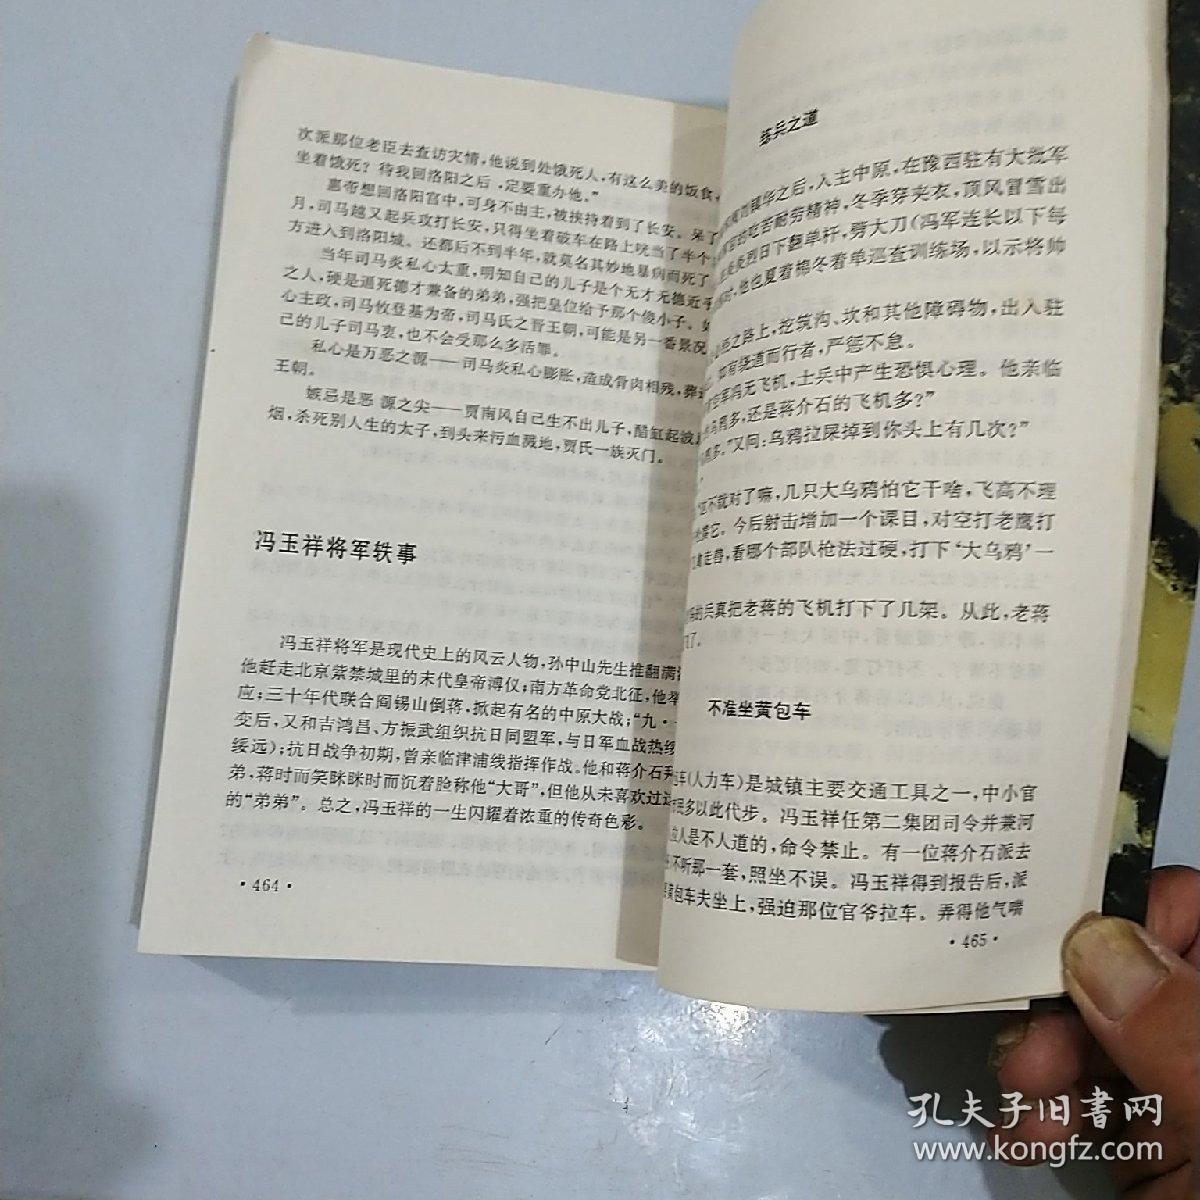 次派那位老臣去查访灾情，他说到处饿死人，有这么美的饭食，
坐着饿死？待我回洛阳之后，定要重办他。”
惠帝想回洛阳宫中，可身不由主，被挟持着到了长安。呆了
月，司马越又起兵攻打长安，只得坐着破车在路上咣当了半个
方进入到洛阳城。还都后不到半年，就莫名其妙地暴病而死了
当年司马炎私心太重，明知自己的儿子是个无才无德近乎
之人，硬是逼死德才兼备的弟弟，强把皇位给予那个傻小子。如
心主政，司马攸登基为帝，司马氏之晋王朝，可能是另一番景况
己的儿子司马衷，也不会受那么多活罪。
私心是万恶之源——司马炎私心膨胀，造成骨肉相残，葬
王朝。
嫉忌是恶 源之尖——贾南风自己生不出儿子，醋缸起波
烟，杀死别人生的太子，到头来污血溅地，贾氏一族灭门。
冯玉祥将军轶事
冯玉祥将军是现代史上的风云人物，孙中山先生推翻满
他赶走北京紫禁城里的末代皇帝溥仪；南方革命党北征，他举
应；三十年代联合阎锡山倒蒋，掀起有名的中原大战；“九·
变后，又和吉鸿昌、方振武组织抗日同盟军，与日军血战热
绥远）；抗日战争初期，曾亲临津浦线指挥作战。他和蒋介石
弟，蒋时而笑眯眯时而沉着脸称他“大哥”，但他从未喜欢过
的“弟弟”。总之，冯玉祥的一生闪耀着浓重的传奇色彩。
·464·
练兵之道
刘镇华之后，入主中原，在豫西驻有大批军
官的吃苦耐劳精神，冬季穿夹衣，顶风冒雪出
炎烈日下翻单杆，劈大刀（冯军连长以下每
，他也夏着棉冬着单巡查训练场，以示将帅
之路上，挖筑沟、坎和其他障碍物，出入驻
如有绕道而行者，严惩不怠。
空军冯无飞机，士兵中产生恐惧心理。他亲临
乌鸦多，还是蒋介石的飞机多？”
多。”又问：乌鸦拉屎掉到你头上有几次？”
这不就对了嘛，几只大乌鸦怕它干啥，飞高不理
它。今后射击增加一个课目，对空打老鹰打
走兽，看哪个部队枪法过硬，打下‘大乌鸦’一
的兵真把老蒋的飞机打下了几架。从此，老蒋
了。
不准坐黄包车
车（人力车）是城镇主要交通工具之一，中小官
民多以此代步。冯玉祥任第二集团司令并兼河
人是不人道的，命令禁止。有一位蒋介石派去
不听那一套，照坐不误。冯玉祥得到报告后，派
黄包车夫坐上，强迫那位官爷拉车。弄得他气喘
·465·
孔夫子旧书网
www.kongfz.com